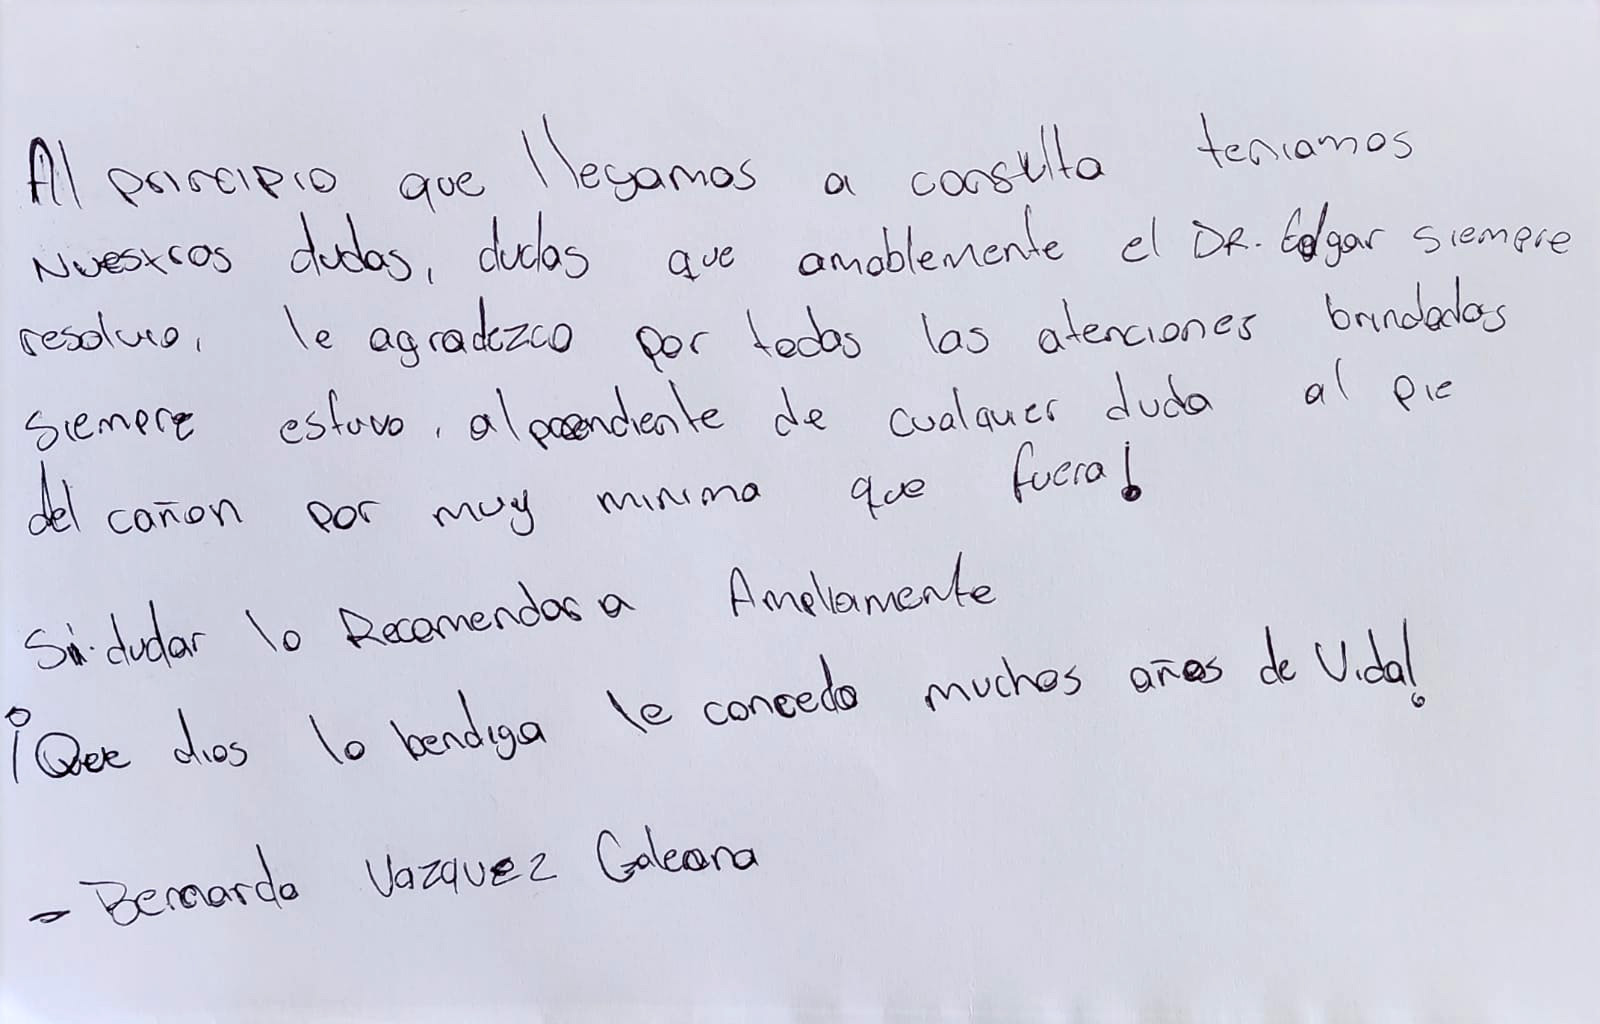 Al principio que llegamos a consulta teniamos
Nuestras dudas, dudas que amablemente el DR. Edgar siempre
resolvio, le agradezco por todas las atenciones brindadas
siempre estuvo, al pendiente de cualquier duda al pie
del cañon por muy minima que fuera!
Sin dudar lo Recomendaria Ampliamente
¡Que dios lo bendiga le conceda muchos años de Vida!
- Bernardo Vazquez Galeana